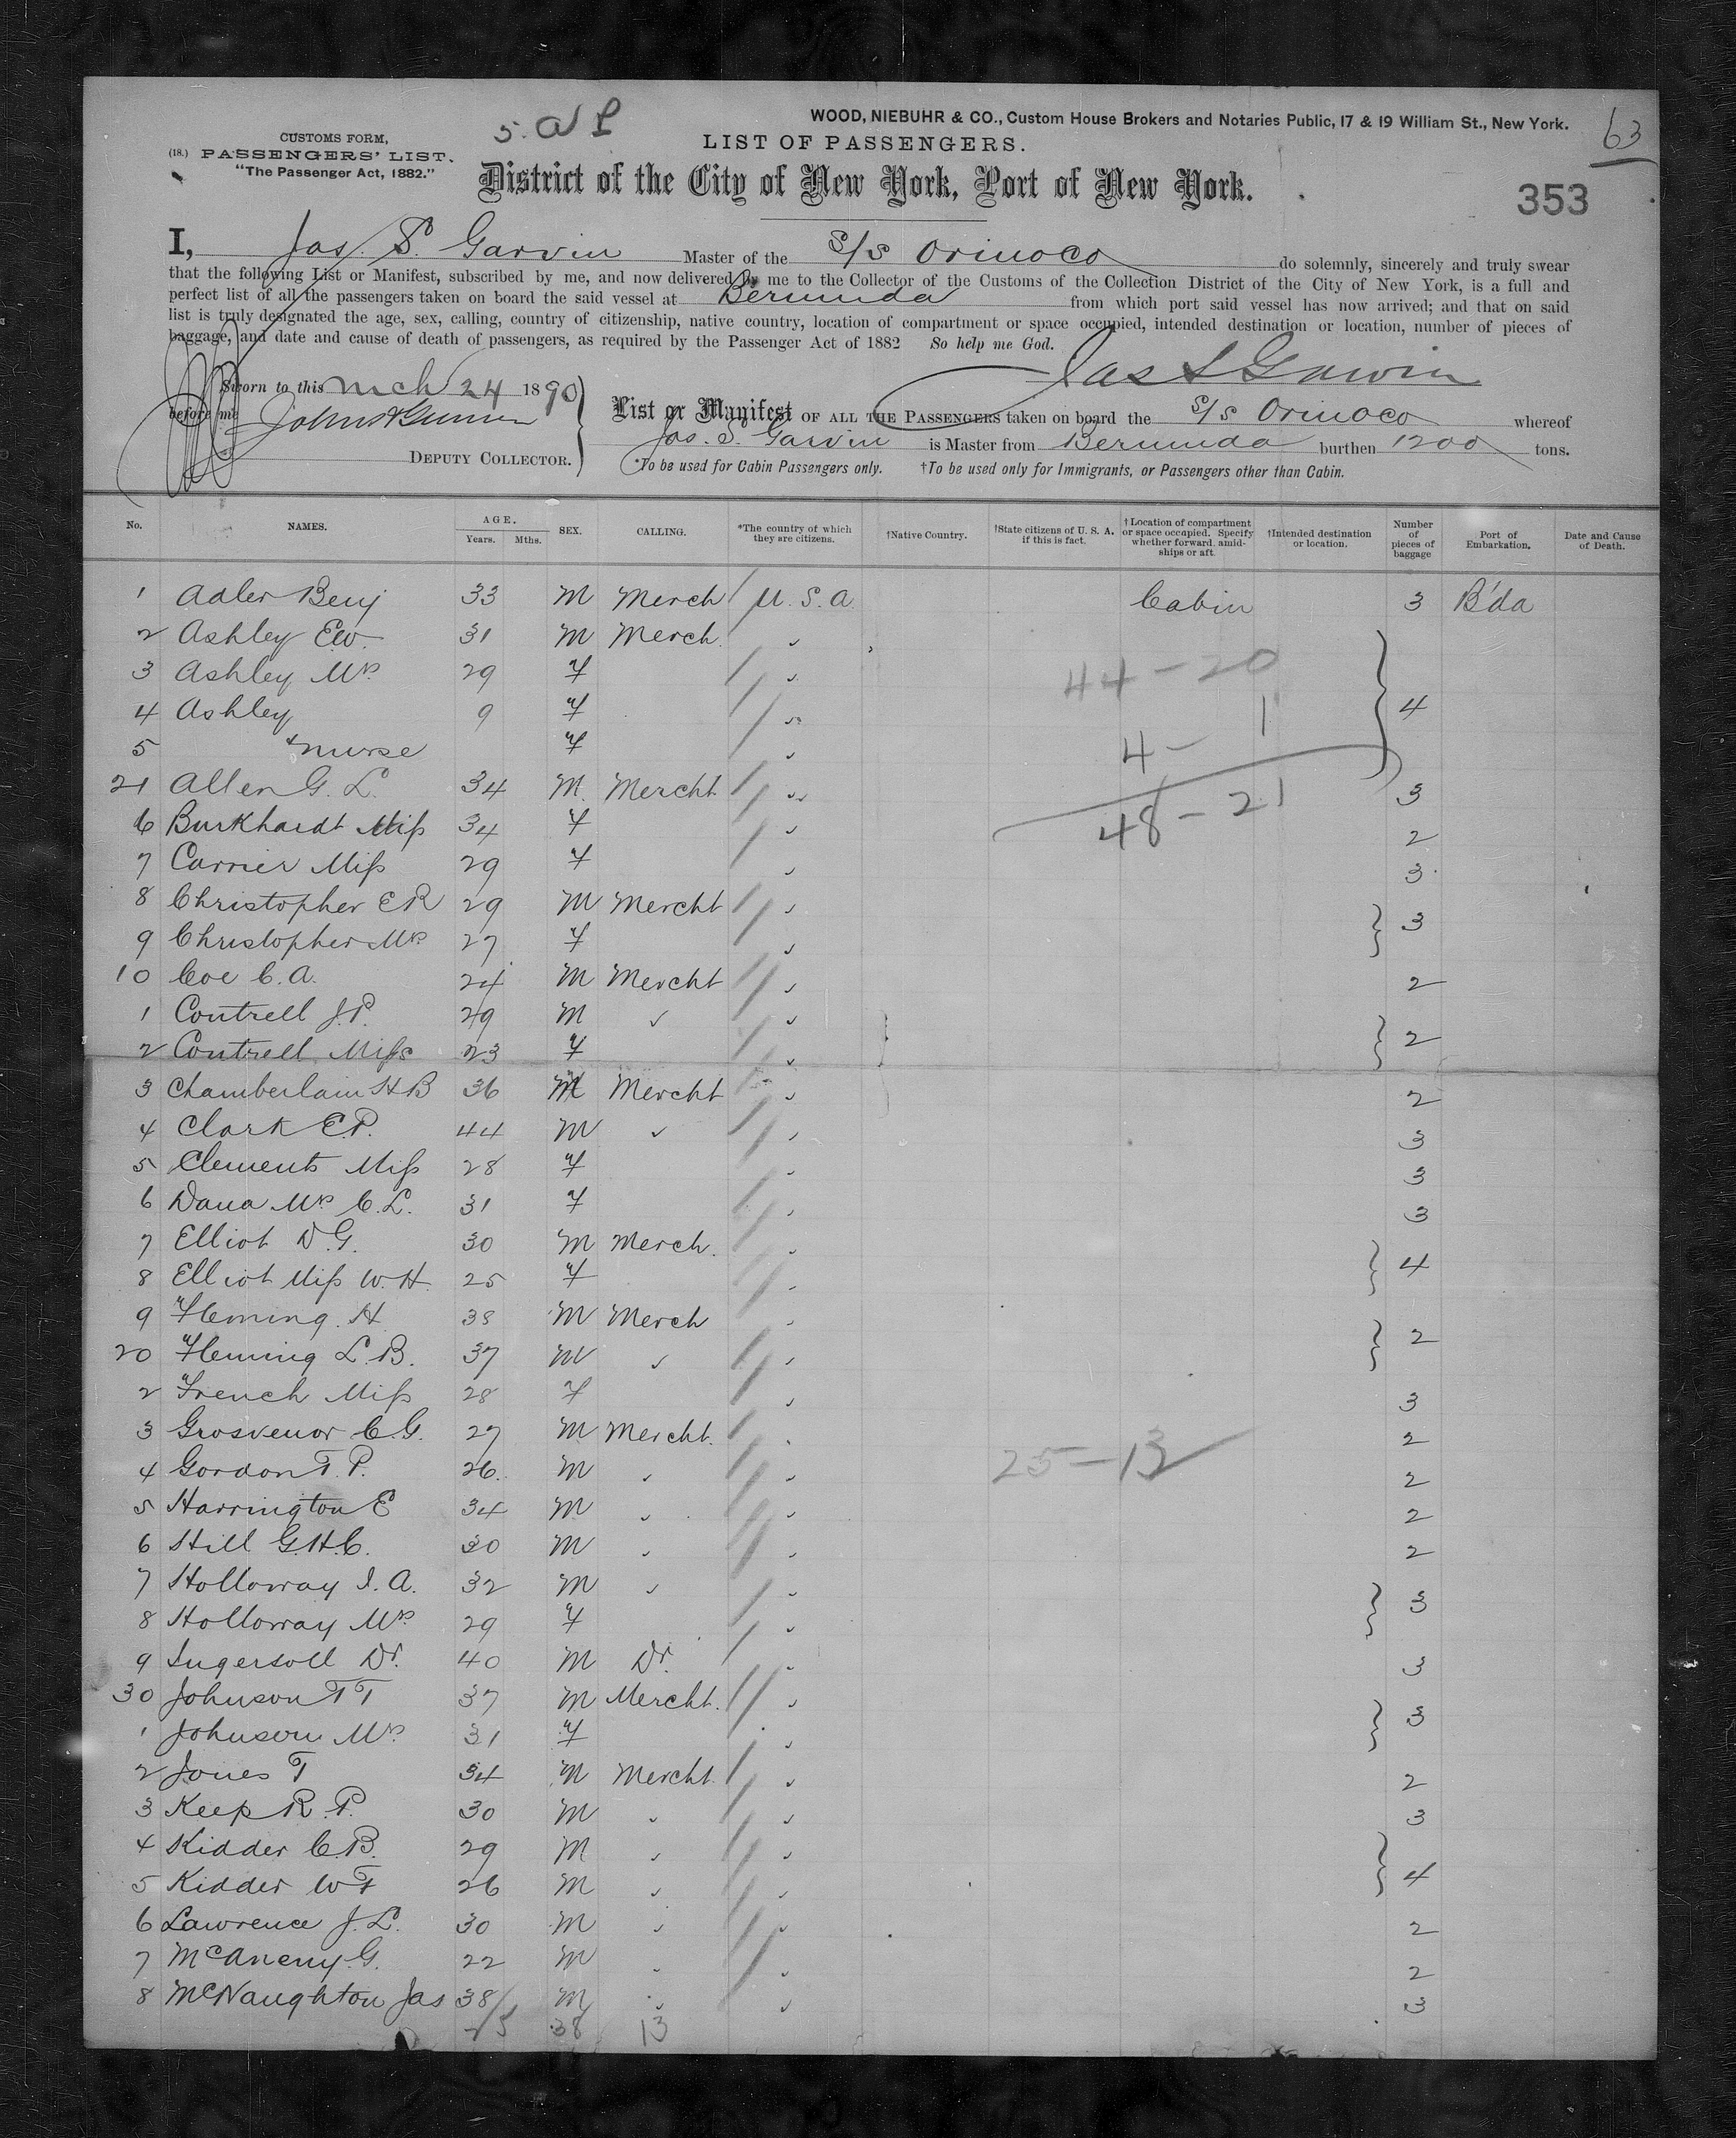 WOOD, NIEBUHR & CO., Custom House Brokers and Notaries Public, 17 & 19 William St., New York.
63
CUSTOMS FORM,
(18.) PASSENGERS' LIST.
"The Passenger Act, 1882."
LIST OF PASSENGERS.
District of the City of New York, Port of New York.
353
I, Jas. S. Garvin Master of the S/S Orinoco do solemnly, sincerely and truly swear
that the following List or Manifest, subscribed by me, and now delivered by me to the Collector of the Customs of the Collection District of the City of New York, is a full and
perfect list of all the passengers taken on board the said vessel at Bermuda from which port said vessel has now arrived; and that on said
list is truly designated the age, sex, calling, country of citizenship, native country, location of compartment or space occupied, intended destination or location, number of pieces of
baggage, and date and cause of death of passengers, as required by the Passenger Act of 1882 So help me God.
Jas S Garvin
Sworn to this Mch 24 1890
before me
DEPUTY COLLECTOR.
List or Manifest OF ALL THE PASSENGERS taken on board the S/S Orinoco whereof
Jas. S. Garvin is Master from Bermuda burthen 1200 tons.
*To be used for Cabin Passengers only. †To be used only for Immigrants, or Passengers other than Cabin.
No. NAMES. AGE. Years. Mths. SEX. CALLING. *The country of which they are citizens. †Native Country. †State citizens of U. S. A. if this is fact. †Location of compartment or space occupied. Specify whether forward, amidships or aft. †Intended destination or location. Number of pieces of baggage Port of Embarkation. Date and Cause of Death.
1 Adler Benj 33 M Merch U.S.A Cabin 3 B'da
2 Ashley E.W. 31 M Merch.
3 Ashley Mrs 29 F 44-20
4 Ashley 9 F 1 4
5 & nurse F 4-
21 Allen G. L. 34 M. Mercht 48-21 3
6 Burkhardt Miss 34 F 2
7 Carrier Miss 29 F 3
8 Christopher E R 29 M Mercht 3
9 Christopher Mrs 27 F
10 Coe C. A. 24 M Mercht 2
1 Contrell J. P. 29 M
2 Contrell Miss 23 F 2
3 Chamberlain H B 36 M Mercht 2
4 Clark E. P. 44 M 3
5 Clements Miss 28 F 3
6 Dana Mrs C. L. 31 F 3
7 Elliot D. G. 30 M Merch. 4
8 Elliot Miss W. H. 25 F
9 Fleming. H 38 M Merch
20 Fleming L. B. 37 M 2
2 French Miss 28 F 3
3 Grosvenor C. G. 27 M Mercht. 2
4 Gordon T. P. 26. M 25-13 2
5 Harrington E 34 M 2
6 Hill G. H. C. 30 M 2
7 Holloway I. A. 32 M 3
8 Holloway Mrs 29 F
9 Ingersoll Dr. 40 M Dr. 3
30 Johnson T T 37 M Mercht. 3
1 Johnson Mrs 31 F
2 Jones T 34 M Mercht. 2
3 Keep R. P. 30 M 3
4 Kidder C. B. 29 M 4
5 Kidder W F 26 M
6 Lawrence J. L. 30 M 2
7 McAneny. G. 22 M 2
8 McNaughton Jas 38 M 3
25 38 13